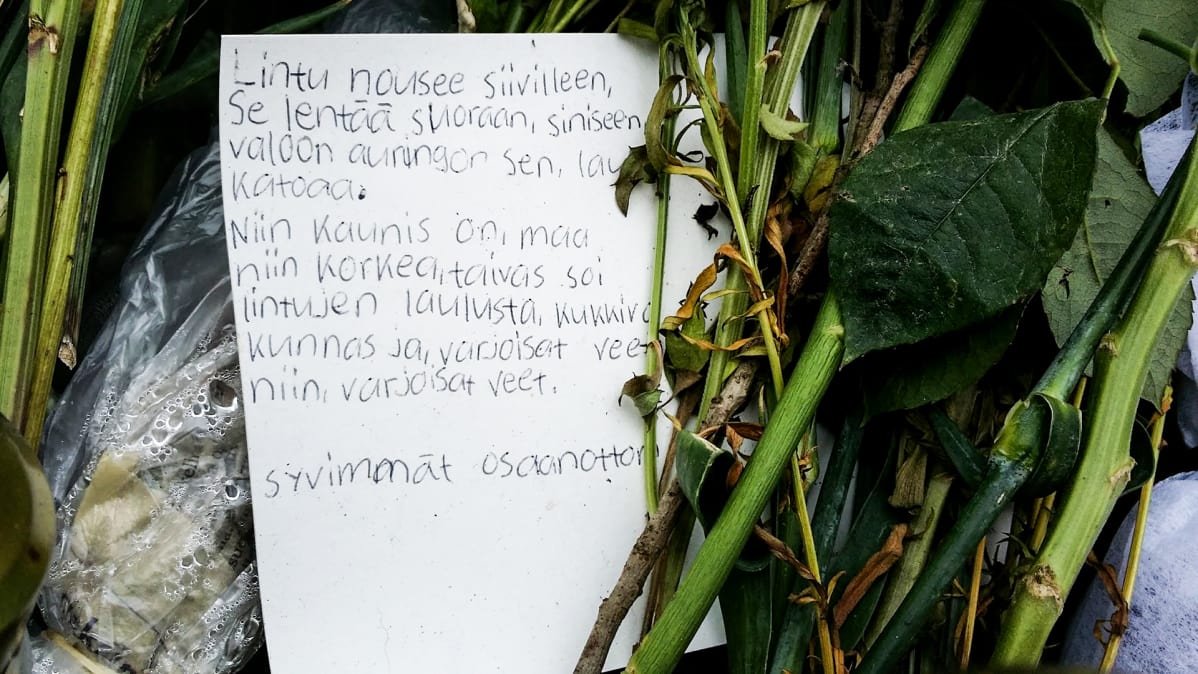 Lintu nousee siivilleen,
Se lentää suoraan, siniseen
valoon auringon sen, lau
katoaa.
Niin kaunis on, maa
niin korkea, taivas soi
lintujen laulusta, kukkiva
kunnas ja, varjoisat veet
niin, varjoisat veet.
syvimmät osaanotton